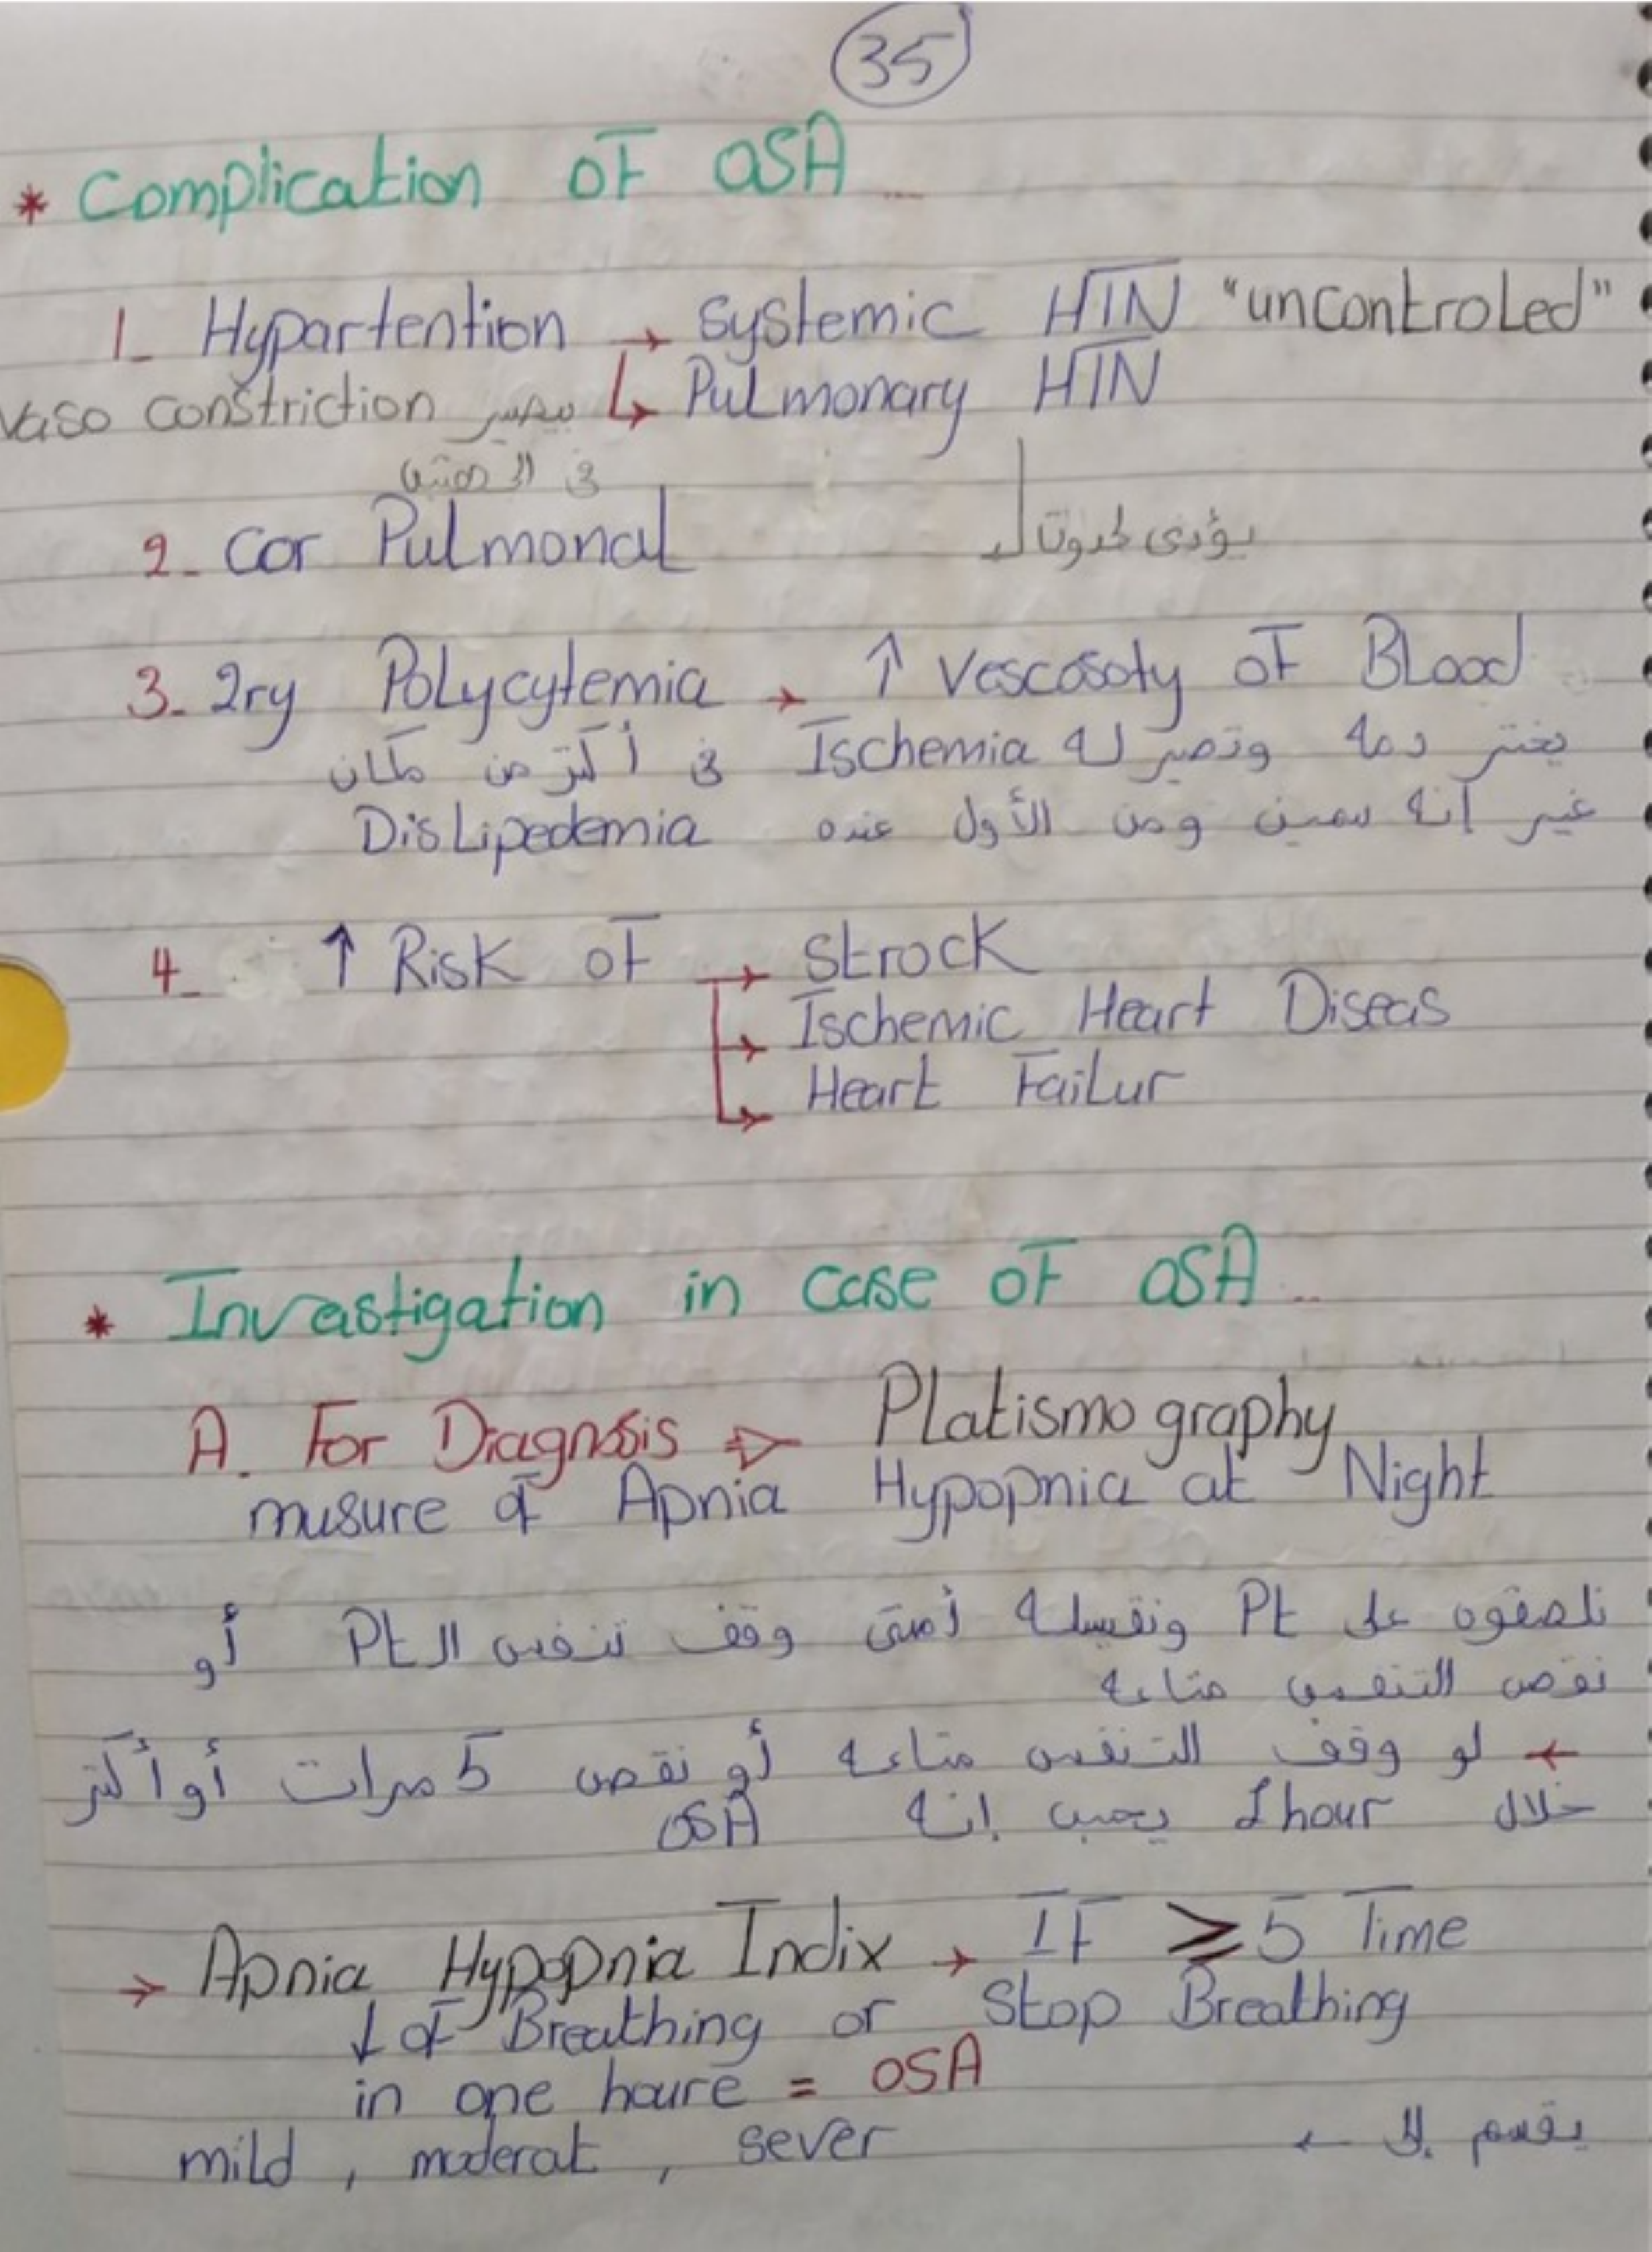 35
* Complication of OSA
1_ Hypartention → Systemic HTN "uncontroled"
↳ Pulmonary HTN
Vaso constriction بيصير
في الـ
2_ Cor Pulmonal
يؤدي لحدوث الـ
3_ 2ry Polycytemia → ↑ Vescosoty of Blood
يخثر دمه وتصير له Ischemia في أكثر من مكان
غير انه سمين ومن الأول عنده Dislipedemia
4_ ↑ Risk of → Strock
→ Ischemic Heart Diseas
↳ Heart Failur
* Investigation in case of OSA
A. For Diagnosis ⇒ Platismo graphy
musure of Apnia Hypopnia at Night
نلصقوه على Pt ونقيسله أمتى وقف تنفس الـ Pt أو
نقص التنفس متاعه
← لو وقف التنفس متاعه أو نقص 5 مرات أو أكثر
خلال 1 hour إنه OSA
→ Apnia Hypopnia Indix → IF ≥ 5 Time
↓ of Breathing or Stop Breathing
in one houre = OSA
يقسم إلى ←
mild , moderat , sever